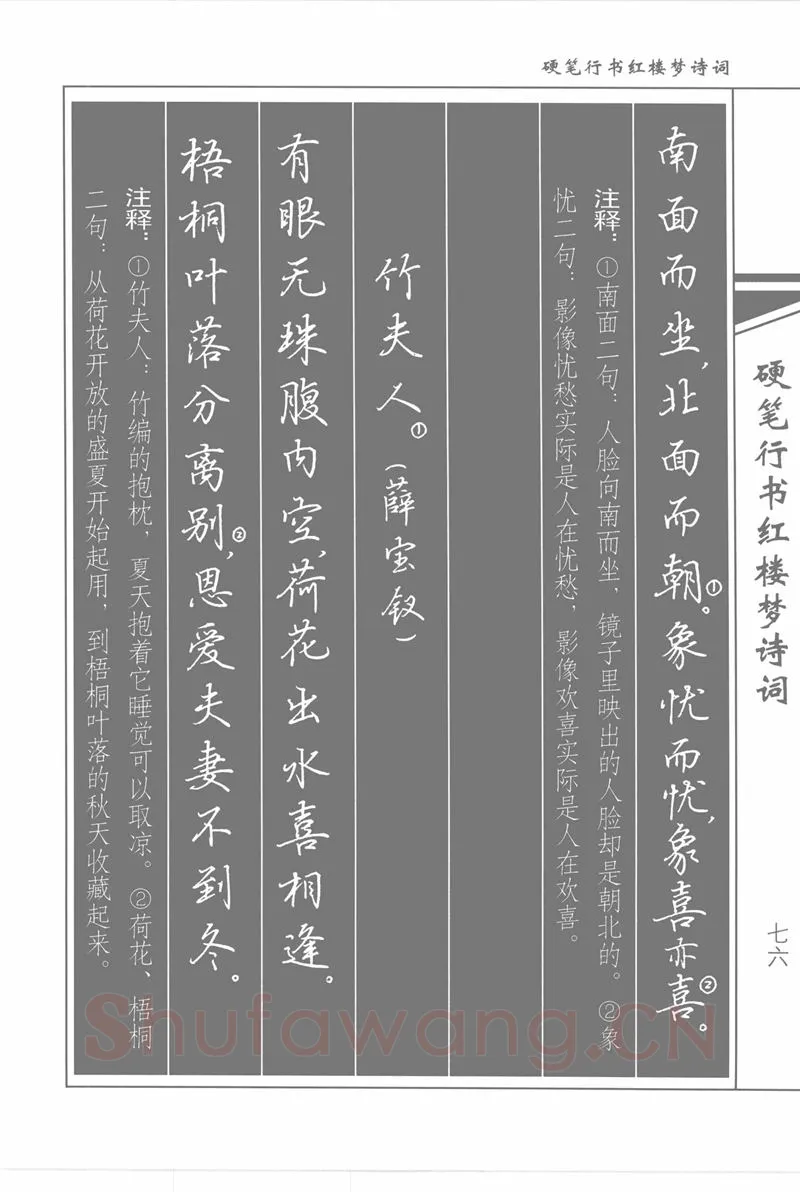 硬笔行书红楼梦诗词
硬笔行书红楼梦诗词
七六
南面而坐,北面而朝①。象忧而忧,象喜亦喜②。
注释：①南面二句：人脸向南而坐，镜子里映出的人脸却是朝北的。②象
忧二句：影像忧愁实际是人在忧愁，影像欢喜实际是人在欢喜。
竹夫人①(薛宝钗)
有眼无珠腹内空,荷花出水喜相逢。
梧桐叶落分离别②,恩爱夫妻不到冬。
注释：①竹夫人：竹编的抱枕，夏天抱着它睡觉可以取凉。②荷花、梧桐
二句：从荷花开放的盛夏开始起用，到梧桐叶落的秋天收藏起来。
Shufawang.CN